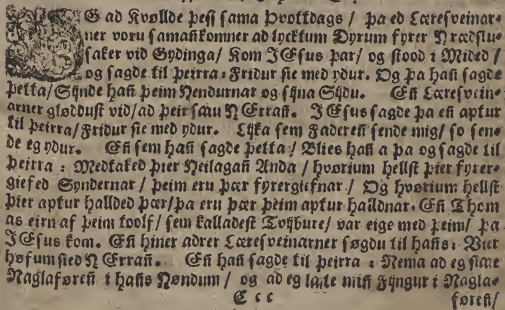 OG ad Kvøllde þess sama Þvottdags / þa ed Læresveinar-
ner voru samanskomner ad lycktum Dyrum fyrer Hrædslu-
saker vid Gydinga / kom JEsus þar / og stood i Mided /
og sagde til þeirra: Fridur sie med ydur. Og þa hañ sagde
þetta / Sýnde hañ þeim Hendurnar og sijna Sijdu. Eñ Læresvein-
arner gløddust vid / ad þeir sáu HErrañ. JEsus sagde þa eñ aptur
til þeirra / Fridur sie med ydur. Lijka sem Faderen sende mig / so sen-
de eg ydur. Eñ sem hañ sagde þetta / Blies hañ a þa og sagde til
þeirra: Medtaked þier Heilagañ Anda / hvørium hellst þier fyrer-
giefed Syndernar / þeim eru þær fyrergiefnar / Og hvørium hellst
þier aptur hallded þær / þa eru þær þeim aptur halldnar. Eñ Thom
as eirn af þeim toolf / sem kalladest Tvijbure / var eige med þeim / þa
JEsus kom. Eñ hiner adrer Læresveinarner søgdu til hañs: Vier
høfum sied HErrañ. Eñ hañ sagde til þeirra: Nema ad eg siáe
Naglaføreñ i hañs Høndum / og ad eg láte miñ Fijngur i Nagla-
E c c føreñ /